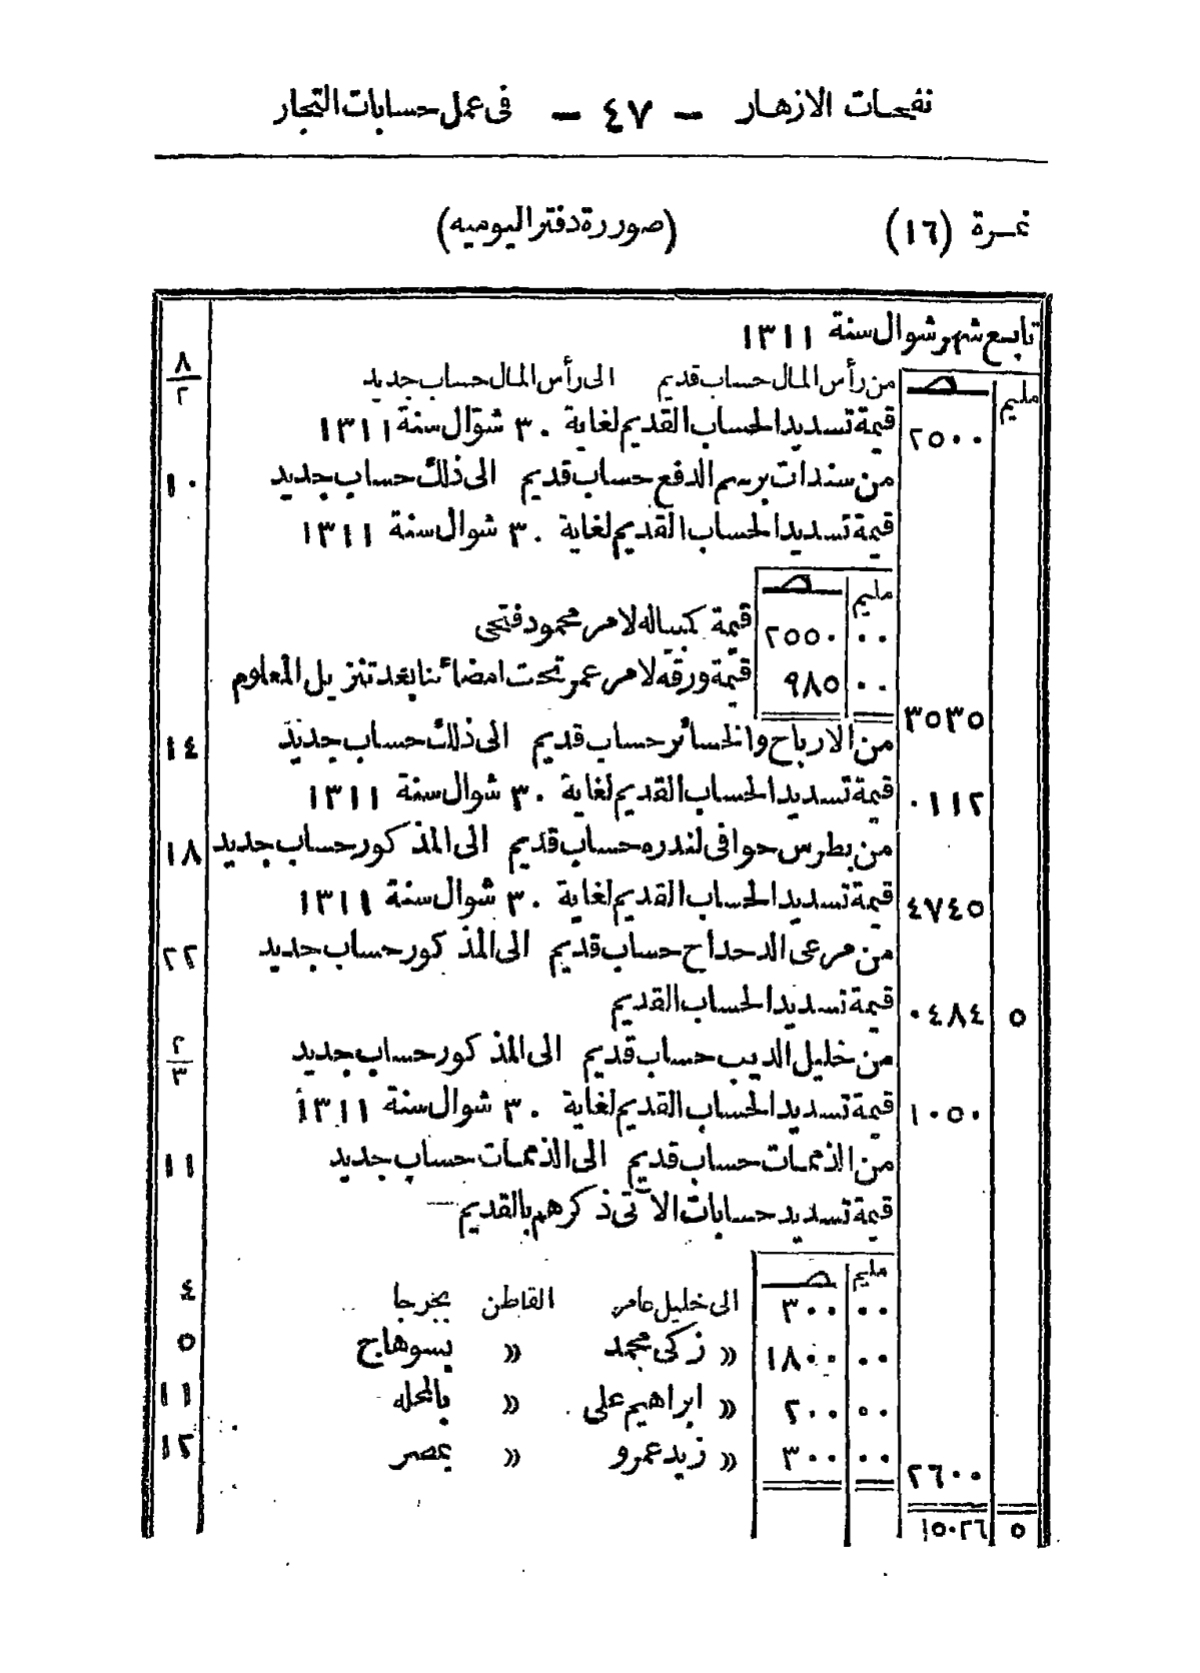 نفحات الازهار — ٤٧ — فى عمل حسابات التجار
نمرة (١٦) (صورة دفتر اليوميه)
تابع شهر شوال سنة ١٣١١
مليم صـ من رأس المال حساب قديم الى رأس المال حساب جديد ٨/٢
٢٥٠٠ قيمة تسديد الحساب القديم لغاية ٣٠ شوال سنة ١٣١١
من سندات برسم الدفع حساب قديم الى ذلك حساب جديد ١٠
قيمة تسديد الحساب القديم لغاية ٣٠ شوال سنة ١٣١١
مليم صـ
٠٠ ٢٥٥٠ قيمة كمبياله لامر محمود فتحى
٠٠ ٩٨٥ قيمة ورقه لامر عمر تحت امضائنا بعد تنزيل المعلوم
٣٥٣٥
من الارباح والخسائر حساب قديم الى ذلك حساب جديد ١٤
٠١١٢ قيمة تسديد الحساب القديم لغاية ٣٠ شوال سنة ١٣١١
من بطرس حوا فى لندره حساب قديم الى المذكور حساب جديد ١٨
٤٧٤٥ قيمة تسديد الحساب القديم لغاية ٣٠ شوال سنة ١٣١١
من مرعى الدحداح حساب قديم الى المذكور حساب جديد ٢٢
٥ ٠٤٨٤ قيمة تسديد الحساب القديم
من خليل الديب حساب قديم الى المذكور حساب جديد ٢/٣
١٠٥٠ قيمة تسديد الحساب القديم لغاية ٣٠ شوال سنة ١٣١١
من الذممات حساب قديم الى الذممات حساب جديد ١١
قيمة تسديد حسابات الآتى ذكرهم بالقديم —
مليم صـ
٠٠ ٣٠٠ الى خليل عامر القاطن بجرجا ٤
٠٠ ١٨٠٠ » زكى محمد » بسوهاج ٥
٠٠ ٢٠٠ » ابراهيم على » بالمحله ١١
٠٠ ٣٠٠ » زيد عمرو » بمصر ١٢
٢٦٠٠
٥ ١٥٠٢٦